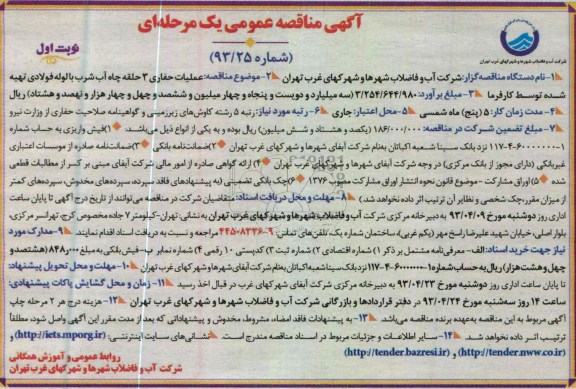 آگهی مناقصه عمومی یک مرحله‌ای
(شماره ۹۳/۲۵)
نوبت اول
شرکت آب و فاضلاب شهرها و شهرکهای غرب تهران
۱-نام دستگاه مناقصه گزار: شرکت آب و فاضلاب شهرها و شهرکهای غرب تهران ۲-موضوع مناقصه: عملیات حفاری ۳ حلقه چاه آب شرب با لوله فولادی تهیه
شده توسط کارفرما ۳-مبلغ برآورد: ۳/۲۵۴/۶۴۴/۹۸۰ (سه میلیارد و دویست و پنجاه و چهار میلیون و ششصد و چهل و چهار هزار و نهصد و هشتاد) ریال
۴-مدت زمان کار: ۵ (پنج) ماه شمسی ۵-محل اعتبار: جاری ۶-رتبه مورد نیاز: رتبه ۵ رشته کاوش‌های زیرزمینی و گواهینامه صلاحیت حفاری از وزارت نیرو
۷-مبلغ تضمین شرکت در مناقصه: ۱۸۶/۰۰۰/۰۰۰ (یکصد و هشتاد و شش میلیون) ریال بوده و به یکی از انواع ذیل می‌باشند: ۱)فیش واریزی به حساب شماره
۱-۶۰۰۰۰۰۰-۴-۱۱۷ نزد بانک سینا شعبه اکباتان بنام شرکت آبفای شهرها و شهرکهای غرب تهران ۲)ضمانت‌نامه بانکی ۳)ضمانت‌نامه صادره از موسسات اعتباری
غیربانکی (دارای مجوز از بانک مرکزی) در وجه شرکت آبفای شهرها و شهرکهای غرب تهران ۴) ارائه گواهی صادره از امور مالی شرکت آبفای مبنی بر کسر از مطالبات قطعی
شده ۵)اوراق مشارکت - موضوع قانون نحوه انتشار اوراق مشارکت مصوب ۱۳۷۶ ۶)چک بانکی تضمینی (به پیشنهادهای فاقد سپرده، سپرده‌های مخدوش، سپرده‌های کمتر
از میزان مقرر، چک شخصی و نظایر آن ترتیب اثر داده نخواهد شد) ۸-مهلت و محل دریافت اسناد: متقاضیان شرکت در مناقصه می‌توانند از تاریخ درج آگهی تا پایان ساعت
اداری روز دوشنبه مورخ ۹۳/۰۴/۰۹ به دبیرخانه مرکزی شرکت آب و فاضلاب شهرها و شهرکهای غرب تهران به نشانی تهران-کیلومتر ۷ جاده مخصوص کرج، تهرانسر مرکزی،
بلوار اصلی، خیابان شهید علیرضا راسخ مهر (یکم غربی)، ساختمان شماره یک، تلفن‌های تماس: ۹-۴۴۵۰۸۳۳۶ مراجعه و نسبت به دریافت اسناد اقدام نمایند. ۹-مدارک مورد
نیاز جهت خرید اسناد: الف-معرفی‌نامه مشتمل بر ذکر ۱) شماره اقتصادی ۲) شماره ثبت ۳) کدپستی ۱۰ رقمی ۴) شماره نمابر ب-فیش بانکی به مبلغ ۸۴۸/۰۰۰ (هشتصد و
چهل و هشت هزار) ریال به حساب شماره ۱-۶۰۰۰۰۰۰-۴-۱۱۷ نزد بانک سینا شعبه اکباتان بنام شرکت آبفای شهرها و شهرکهای غرب تهران ۱۰-مهلت و محل تحویل پیشنهاد:
تا پایان ساعت اداری روز دوشنبه مورخ ۹۳/۰۴/۲۳ به دبیرخانه مرکزی شرکت آبفای شهرکهای غرب در قبال اخذ رسید ۱۱-زمان و محل گشایش پاکات پیشنهادی:
ساعت ۱۴ روز سه‌شنبه مورخ ۹۳/۰۴/۲۴ در دفتر قراردادها و بازرگانی شرکت آب و فاضلاب شهرها و شهرکهای غرب تهران ۱۲-هزینه درج هر ۲ مرحله چاپ
آگهی مربوط به این مناقصه به‌عهده برنده مناقصه می‌باشد ۱۳-به پیشنهادات فاقد امضاء، مشروط، مخدوش و پیشنهاداتی که بعد از مدت مقرر این آگهی واصل شود، مطلقاً
ترتیب اثر داده نخواهد شد. ۱۴-سایر اطلاعات و جزئیات مربوط در اسناد مناقصه مندرج است. نشانی‌های سایت اینترنتی: (http://iets.mporg.ir) و
(http://tender.nww.co.ir) و (http://tender.bazresi.ir)
روابط عمومی و آموزش همگانی
شرکت آب و فاضلاب شهرها و شهرکهای غرب تهران